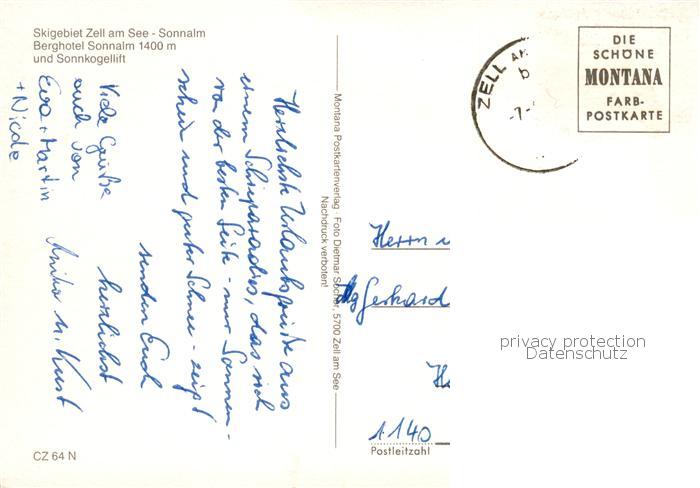 Skigebiet Zell am See - Sonnalm
Berghotel Sonnalm 1400 m
und Sonnkogellift
Herzlichste Urlaubsgrüße aus
einem Schieparadies, das sich
von der besten Seite - nur Sonnen-
schein und guter Schnee - zeigt
senden Euch
herzlichst
Anita u. Kurt
Viele Grüße
auch von
Eva + Martin
+ Nicole
Montana Postkartenverlag · Foto Dietmar Sochor, 5700 Zell am See
Nachdruck verboten!
ZELL AM
b
-7.-
DIE
SCHÖNE
MONTANA
FARB-
POSTKARTE
Herrn u
Gerhard
1140
Postleitzahl
privacy protection
Datenschutz
CZ 64 N